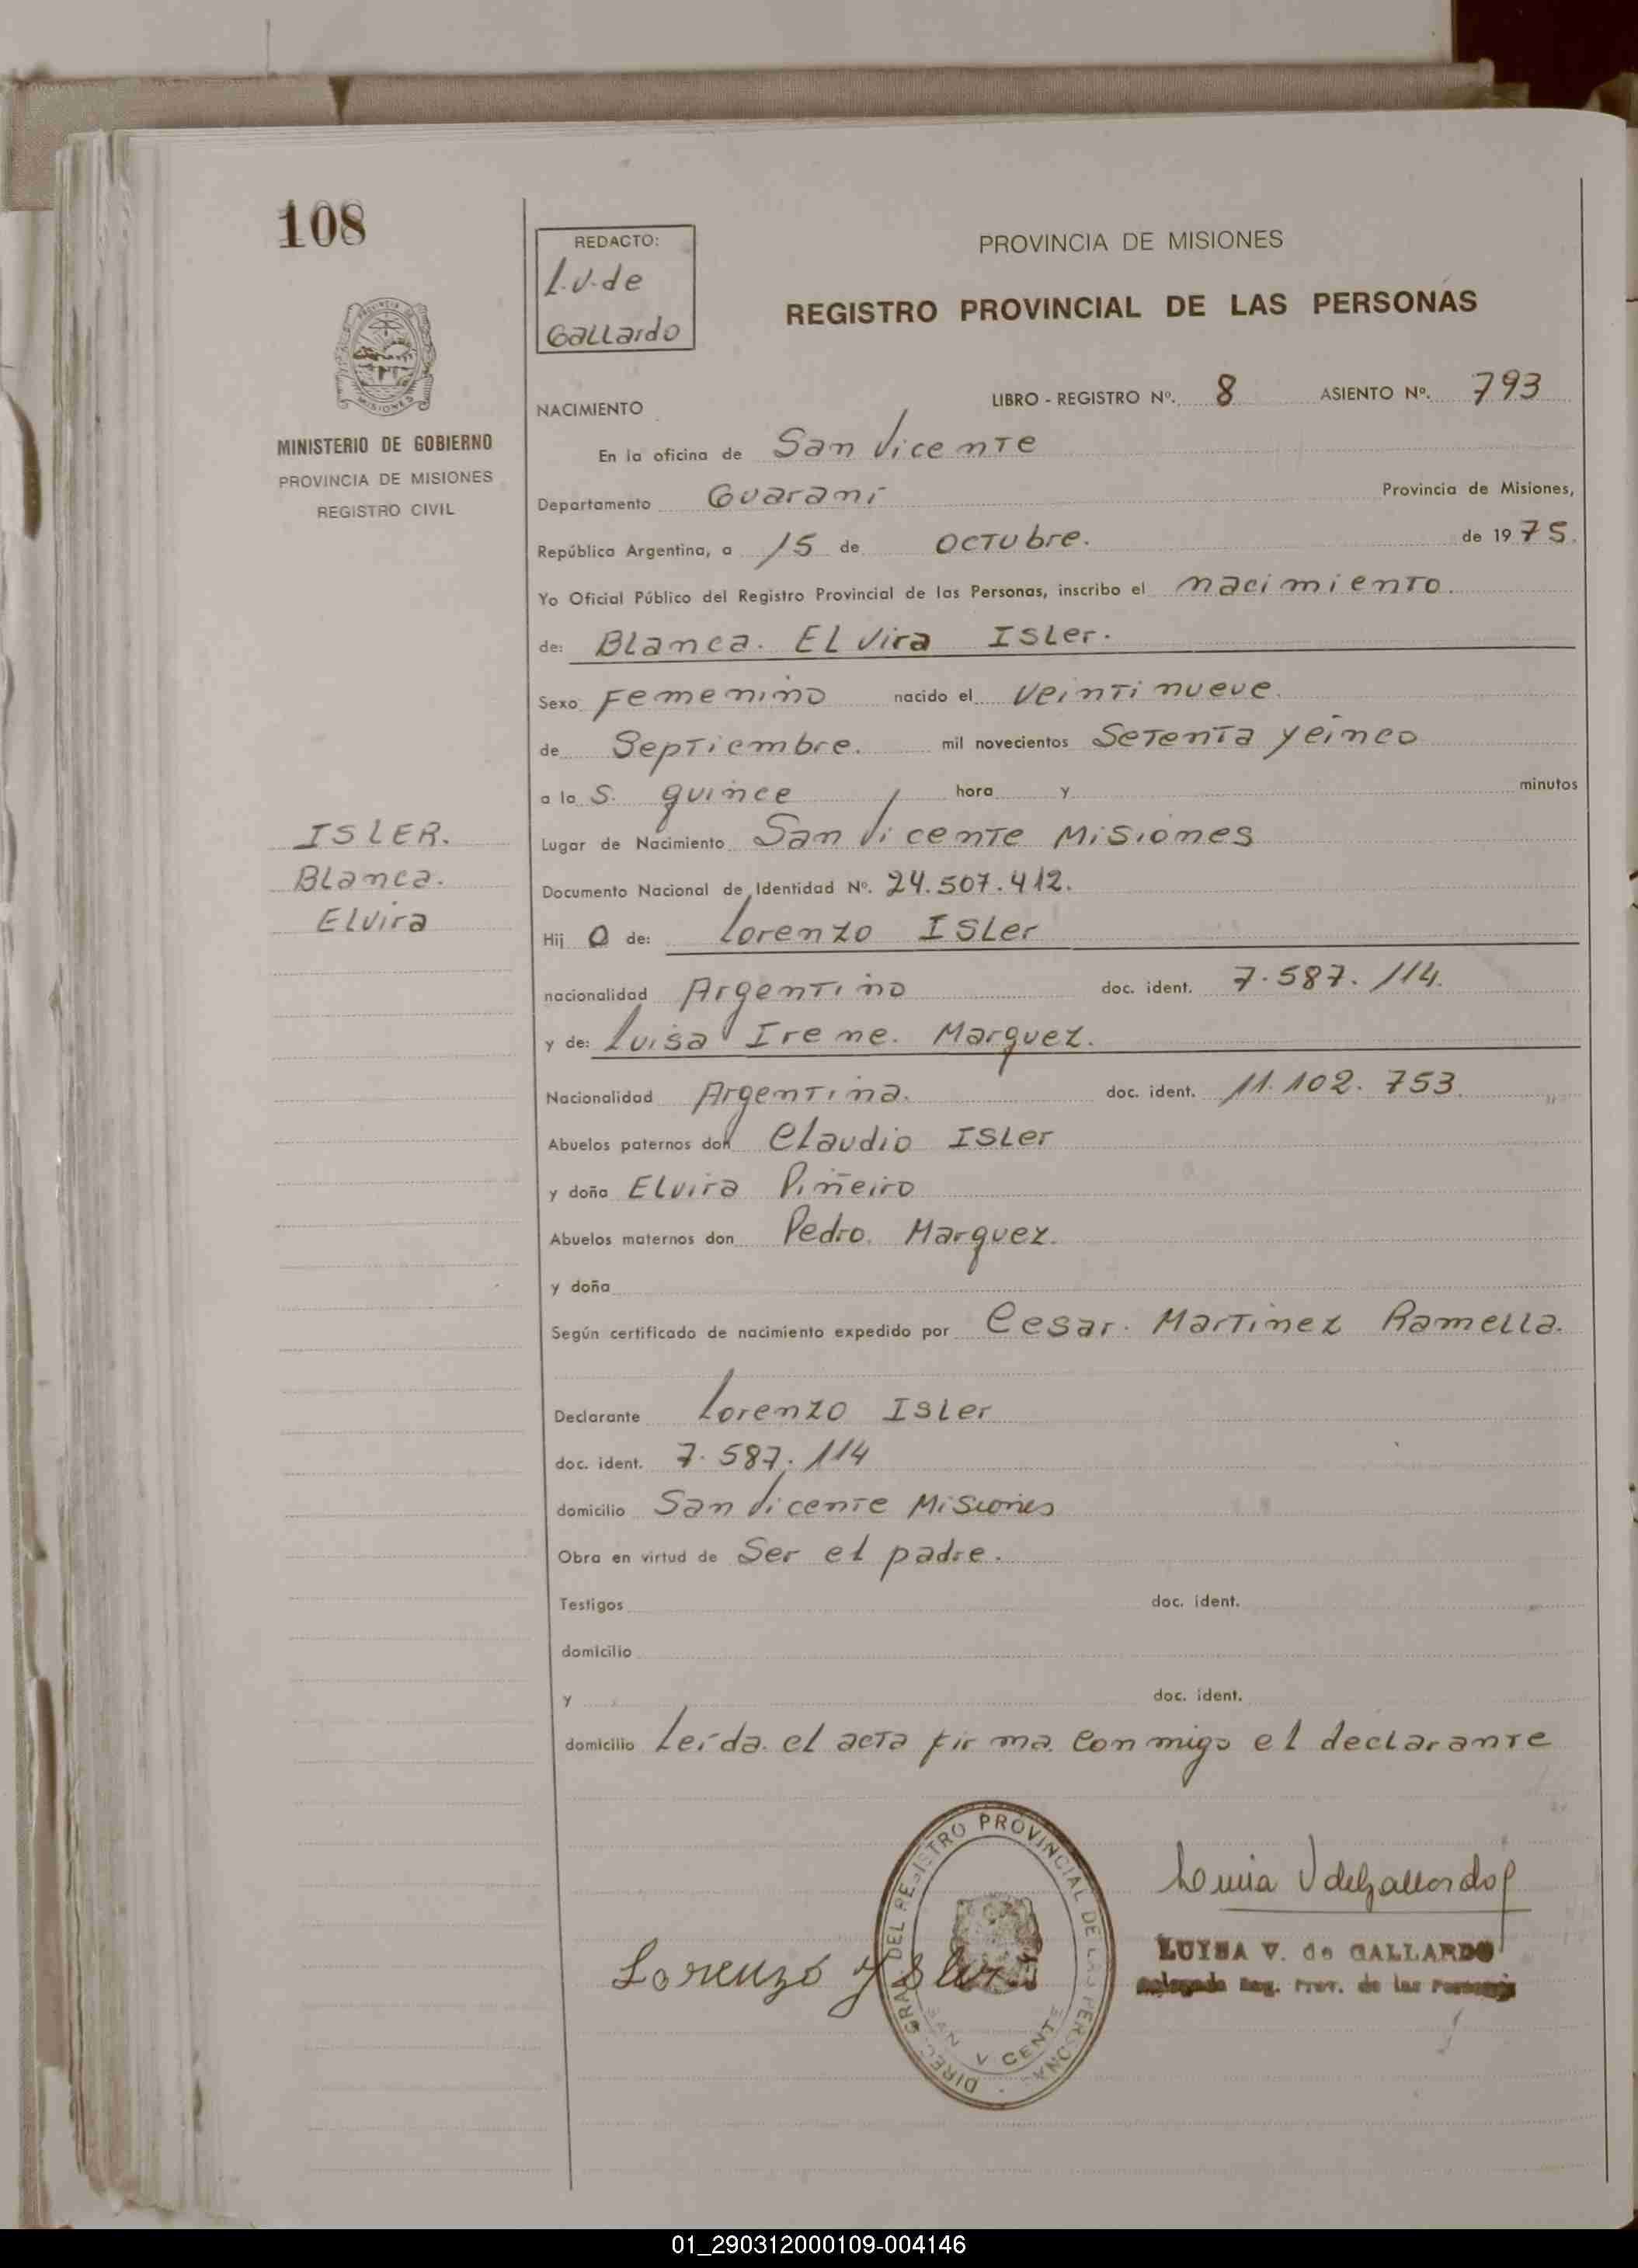 108
REDACTO:
L.V. de
Gallardo
PROVINCIA DE MISIONES
REGISTRO PROVINCIAL DE LAS PERSONAS
MINISTERIO DE GOBIERNO
PROVINCIA DE MISIONES
REGISTRO CIVIL
NACIMIENTO LIBRO - REGISTRO Nº. 8 ASIENTO Nº. 793
En la oficina de San Vicente
Departamento Guaraní Provincia de Misiones,
República Argentina, a 15 de Octubre. de 1975.
Yo Oficial Público del Registro Provincial de las Personas, inscribo el nacimiento.
de: Blanca. Elvira Isler.
Sexo Femenino nacido el veintinueve.
de Septiembre. mil novecientos Setenta y cinco
a la s. quince hora y minutos
Lugar de Nacimiento San Vicente Misiones
Documento Nacional de Identidad Nº. 24.507.412.
Hij a de: Lorenzo Isler
nacionalidad Argentino doc. ident. 7.587.114.
y de: Luisa Irene. Marquez.
Nacionalidad Argentina. doc. ident. 11.102.753.
Abuelos paternos don Claudio Isler
y doña Elvira Piñeiro
Abuelos maternos don Pedro. Marquez.
y doña
Según certificado de nacimiento expedido por Cesar. Martinez Ramella.
Declarante Lorenzo Isler
doc. ident. 7.587.114
domicilio San Vicente Misiones
Obra en virtud de Ser el padre.
Testigos doc. ident.
domicilio
y doc. ident.
domicilio Leída el acta firma conmigo el declarante
ISLER.
Blanca.
Elvira
DIREC. GRAL. DEL REGISTRO PROVINCIAL DE LAS PERSONAS
SAN VICENTE
Lorenzo Ysler
Luisa V de Gallardo
LUISA V. de GALLARDO
Delegada Reg. Prov. de las Personas
01_290312000109-004146